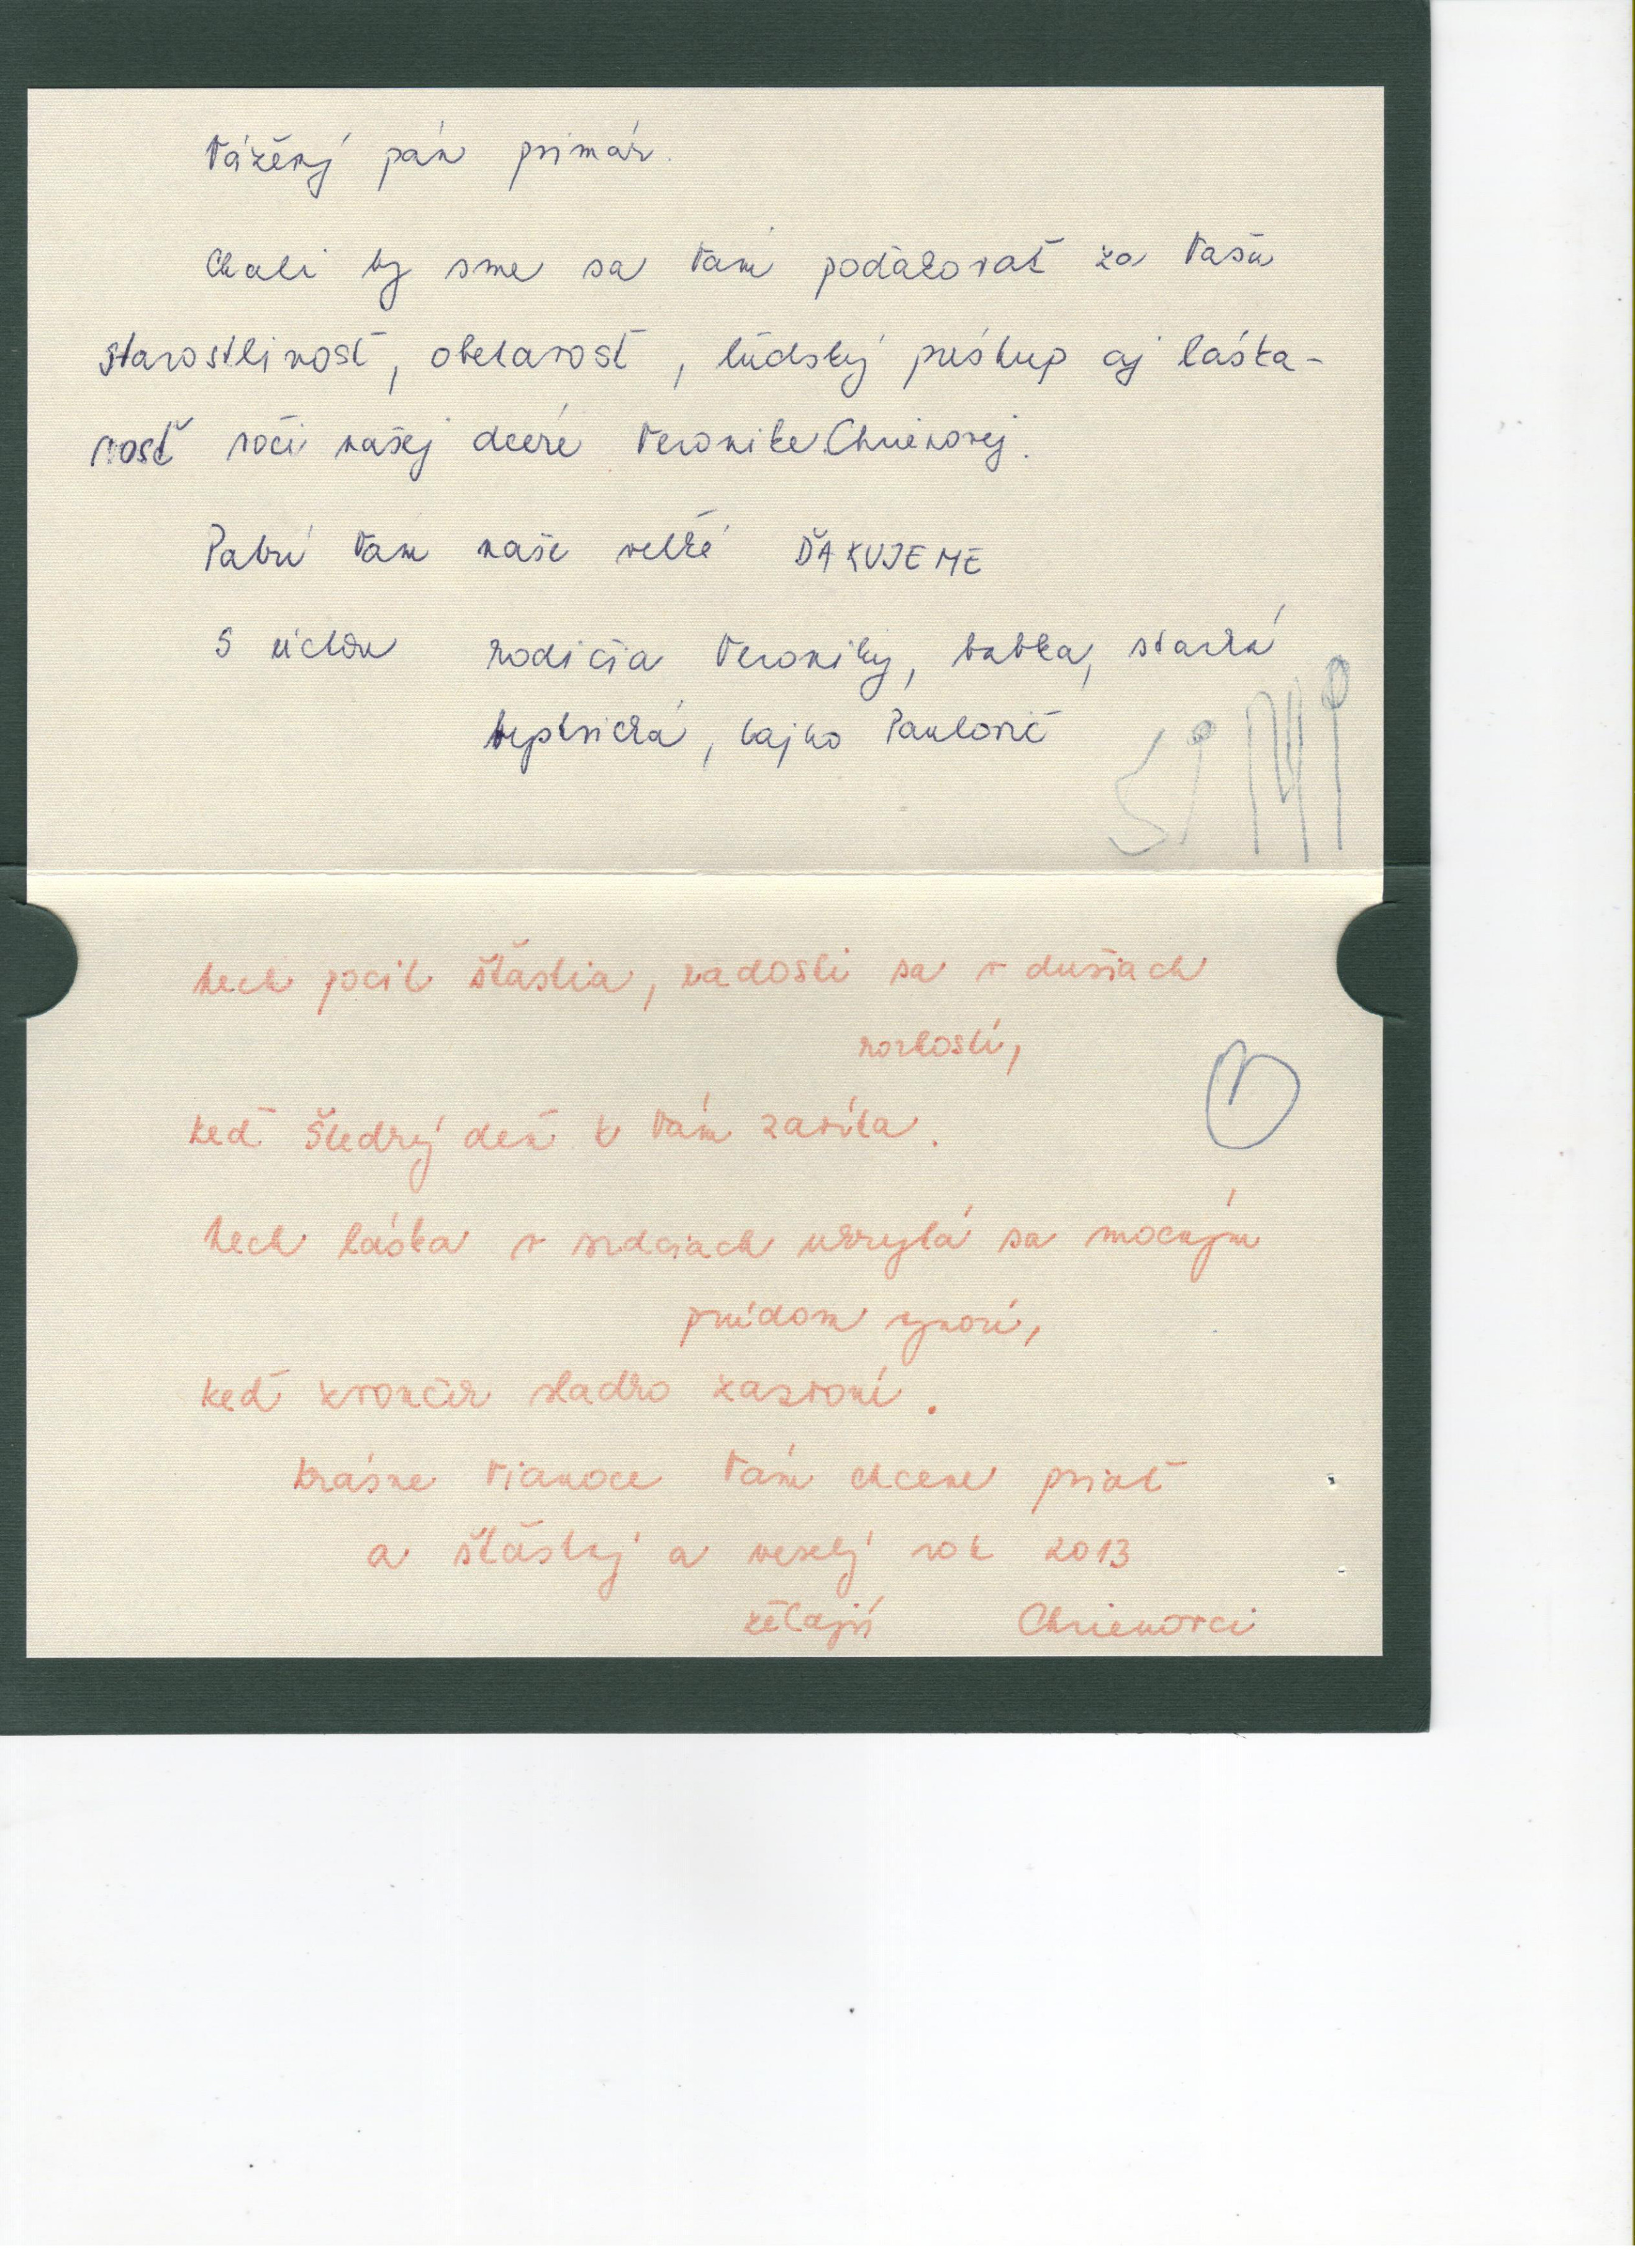 Vážený pán primár.
Chceli by sme sa Vám poďakovať za Vašu
starostlivosť, obetavosť, ľúdský prístup aj láska-
vosť voči našej dcére Veronike Chrienovej.
Patrí Vám naše veľké ĎAKUJEME
S úctou rodičia Veroniky, babka, starká
bystrická, Lajko Paulovič
Nech pocit šťastia, radosti sa v dušiach
rozhostí,
keď Štedrý deň k Vám zavíta.
Nech láska v srdciach ukrytá sa mocným
prúdom vynorí,
keď zvonček sladko zazvoní.
Krásne Vianoce Vám chceme priať
a šťastný a veselý rok 2013
želajú Chrienovci